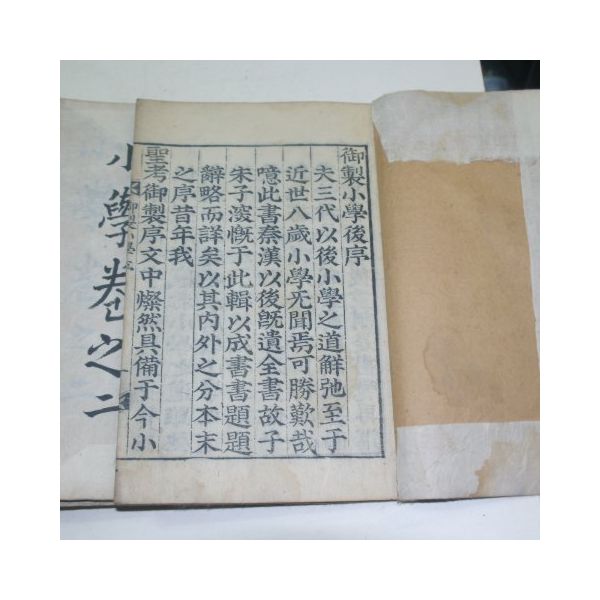 御製小學後序
夫三代以後小學之道鮮弛至于
近世八歲小學无聞焉可勝歎哉
噫此書秦漢以後旣遺全書故子
朱子深慨于此輯以成書書題題
辭略而詳矣以其內外之分本末
之序昔年我
聖考御製序文中燦然具備于今小
小學卷之二